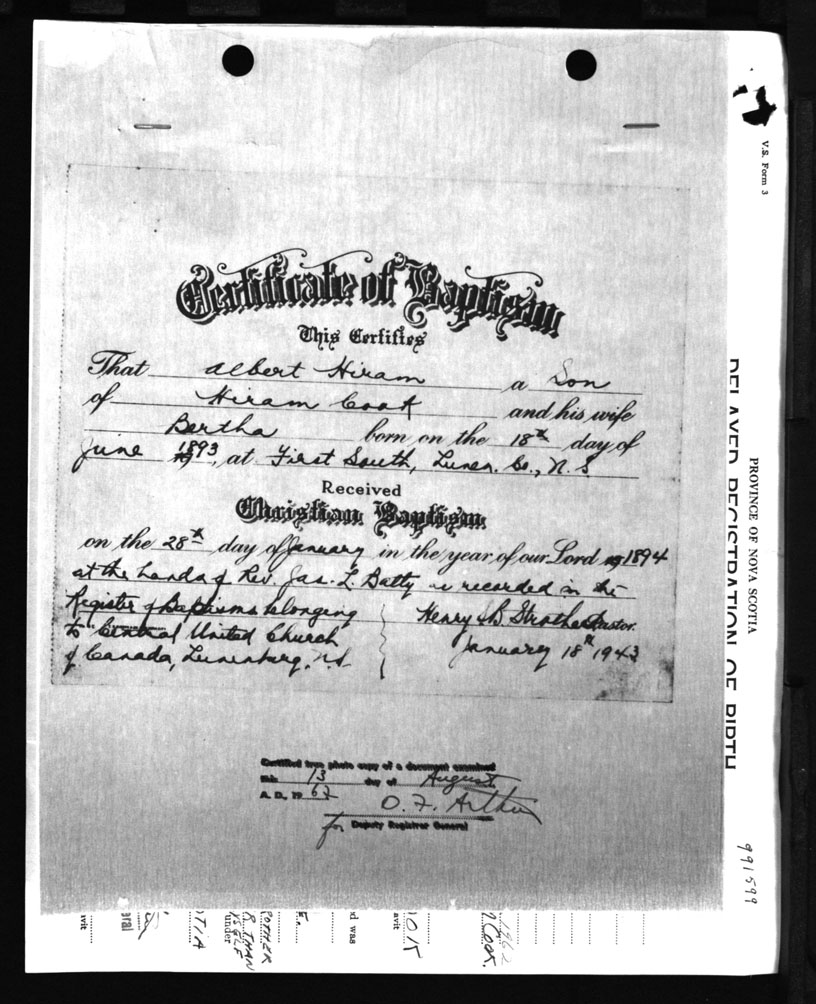 Certificate of Baptism
This Certifies
That Albert Hiram a Son
of Hiram Cook and his wife
Bertha born on the 18th day of
June 1893, at First South, Lunen. Co., N.S
Received
Christian Baptism
on the 28th day of January in the year of our Lord 1894
at the hands of Rev. Jas. L. Batty is recorded in the
Register of Baptisms belonging
to Central United Church
of Canada, Lunenburg, N.S.
Henry B. Strothard Pastor.
January 18th 1943
Certified true photo copy of a document examined
this 13 day of August
A. D. 1962
O. F. Arthur
for Deputy Registrar General
V.S. Form 3
PROVINCE OF NOVA SCOTIA
DELAYED REGISTRATION OF BIRTH
991599
1962
Cook.
avit
1015
d was
E.
ROTHER
R THAN
under
TIA
eral
avit